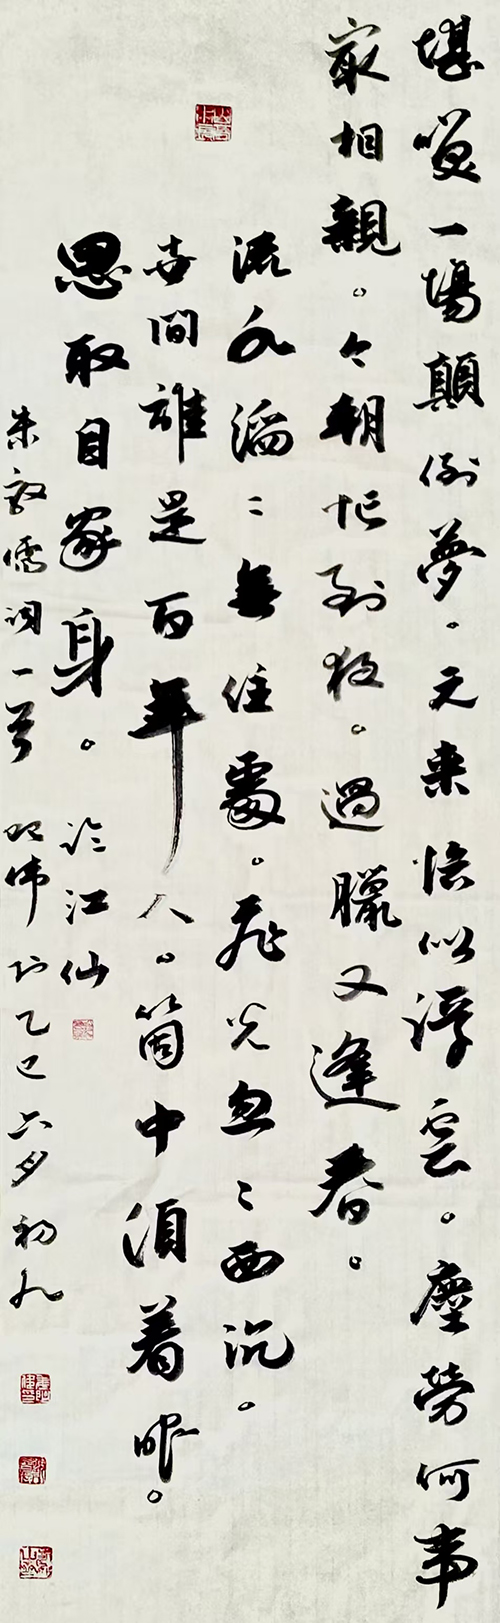 堪咲一場顛倒夢。元来恰似浮雲。塵勞何事
最相親。今朝忙到夜。過臘又逢春。
流水滔〻無住處。飛光忽〻西沉。
世間誰是百年人。箇中須着眼。
思取自家身。臨江仙
朱敦儒詞一首 伟於乙巳六月初九